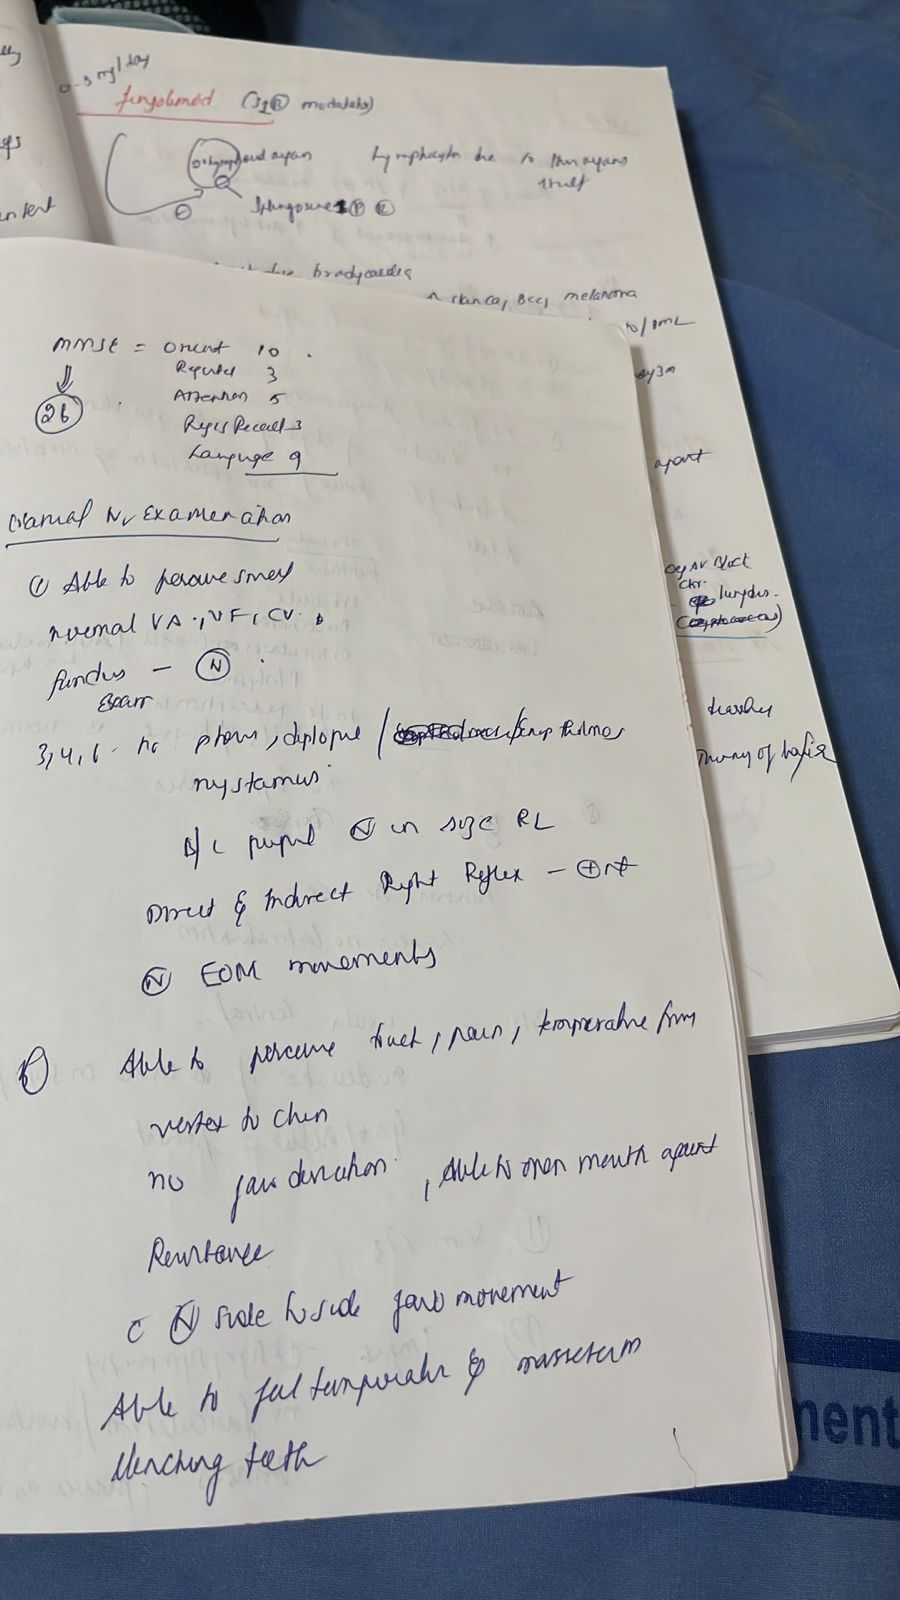 0.5 mg/day
fingolimod (S1 R modulator)
lymphoid organ Lymphocyte due to thin organs
itself
Sphingosine 1 P R
bradycardia
skin ca, BCC, melanoma
/PML
apart
AV block
Theory of
MMSE = Orient 10
26
3
Attention 5
Recall 3
Language 9
Cranial Nv Examination
1 Able to perceive smell
normal VA, VF, CV
fundus - N
Exam
3,4,6 - no ptosis, diplopia /
nystamus
B/L pupil N in size RL
Direct & Indirect Right Reflex - + nt
N EOM movements
Able to perceive touch, pain, temperature from
vertex to chin
no jaw deviation, Able to open mouth against
Resistance
c N side to side jaw movement
Able to feel temporalis & masseter
clenching teeth
ment